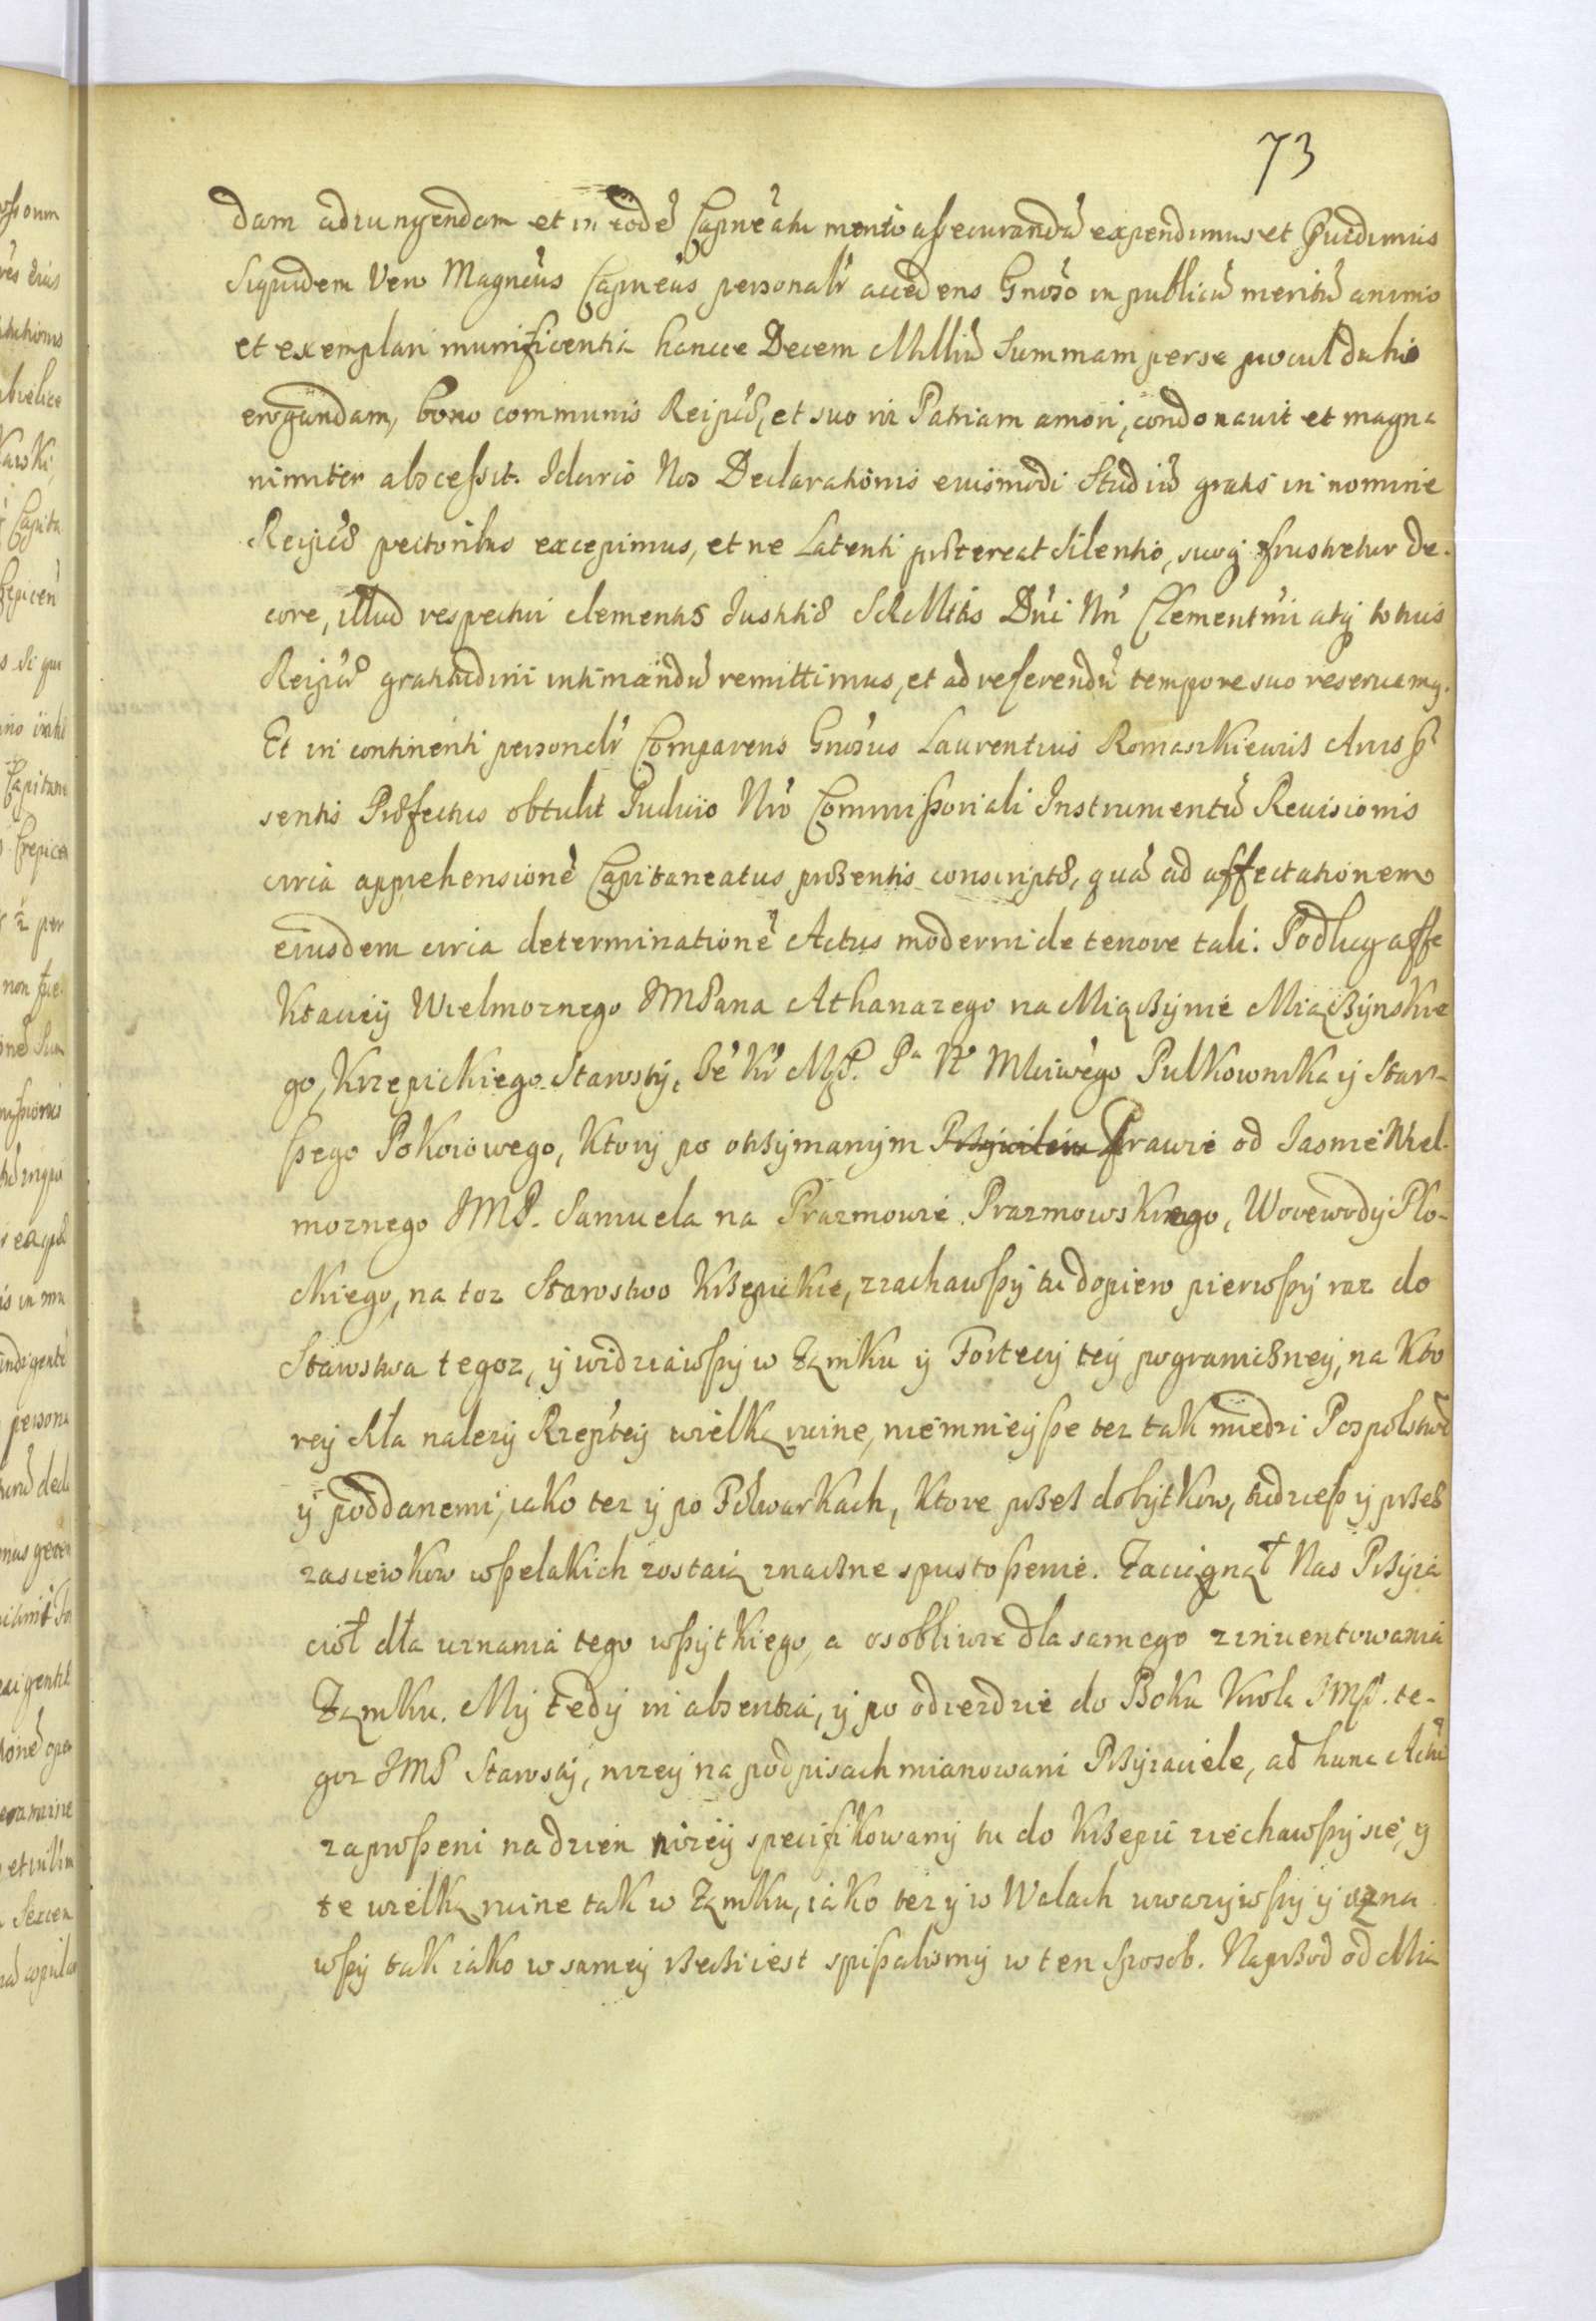 73
dam adiungendam et in eodē Capneātu merito assecurandā expendimus et
Siquidem Vero Magncūs Capneūs personalr accedens Gnoso in publicū meritū animo
et exemplari munificentia hancce Decem Milliū Summam per se procul dubio
erogandam, bono communis Reipcæ, et suo in Patriam amori, condonavit et magna
nimiter abscessit. Idcirco Nos Declarationis eiusmodi Studiū gratis in nomine
Reipcæ pectoribus excepimus, et ne Latenti prætereat Silentio, suoq frustretur de-
core, illud respectui clementis Iustitiæ S R Mtis Dni Nri Clementmi atq totius
Reipcæ gratitudini intimandū remittimus, et ad referendū tempore suo reservamq.
Et in continenti personalr Comparens Gnosus Laurentius Romaszkiewicz Arcis præ
sentis Præfectus obtulit Iudicio Nro Commissoriali Instrumentū Revisionis
circa apprehensionē Capitaneatus præsentis conscriptæ, quā ad affectationem
eiusdem circa determinationē Actus moderni de tenore tali: Podług affe
ktaciÿ Wielmoznego JMPana Athanazego na Miączÿnie Miączÿnskie
go, Krzepickiego Starostÿ, Je° Kr Msci Pa N° Mciwego Pulkownika ÿ Star-
szego Pokoiowego, ktorÿ po otrzÿmanÿm Przÿwileiu Prawie od Jasnie Wiel-
moznego JMP. Samuela na Prazmowie Prazmowskiego, Woiewodÿ Plo-
ckiego, na toz Starostwo Krzepickie, ziachawszÿ tu dopiero pierwszÿ raz do
Starostwa tegoz, ÿ widziawszÿ w Zamku ÿ Fortecÿ teÿ pogranicznеÿ, na kto
reÿ siła nalezÿ Rzeptеÿ wielką ruine, niemnieÿsze tez tak miedzi Pospolstwē
ÿ poddanemi, iako tez ÿ po Folwarkach, ktore przez dobÿtkow, tudziesz ÿ przez
zasiewkow wszelakich zostaią znaczne spustoszenie. Zaciągnął Nas Przÿia
ciół dla uznania tego wszÿtkiego, a osobliwie dla samego zinwentowania
Zamku. Mÿ tedÿ in absentia, ÿ po odiezdzie do Boku Krola JMsci te-
goz JMP Starostÿ, nizeÿ na podpisach mianowani Przÿiaciele, ad hunc Actū
zaproszeni na dzien nizeÿ specifikowanÿ tu do Krzepic ziechawszÿ sie, ÿ
te wielką ruine tak w Zamku, iako tez ÿ w Walach uwazÿwszÿ ÿ uzna
wszÿ tak iako w sameÿ rzeczi iest spisalismÿ w ten sposob. Naprzod od Mia